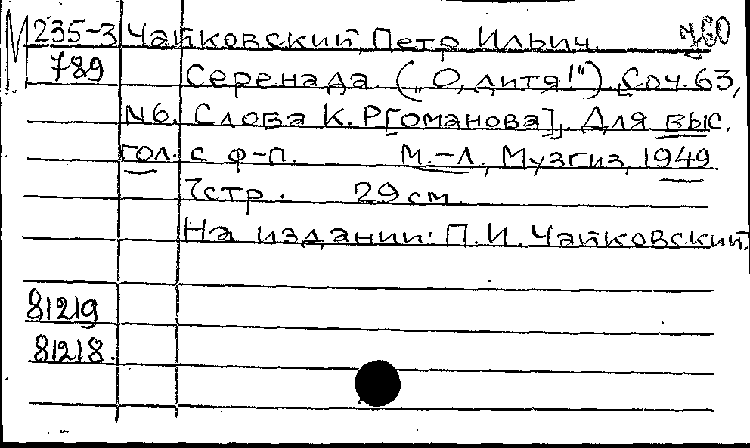 М 235-3 Чайковский, Петр Ильич.
789 Серенада ("О, дитя!"). Соч. 63,
N6. Слова К. Р[оманова]. Для выс.
гол. с ф-п. М.-Л., Музгиз, 1949.
7стр. 29 см.
На издании: П.И. Чайковский.
81219
81218.